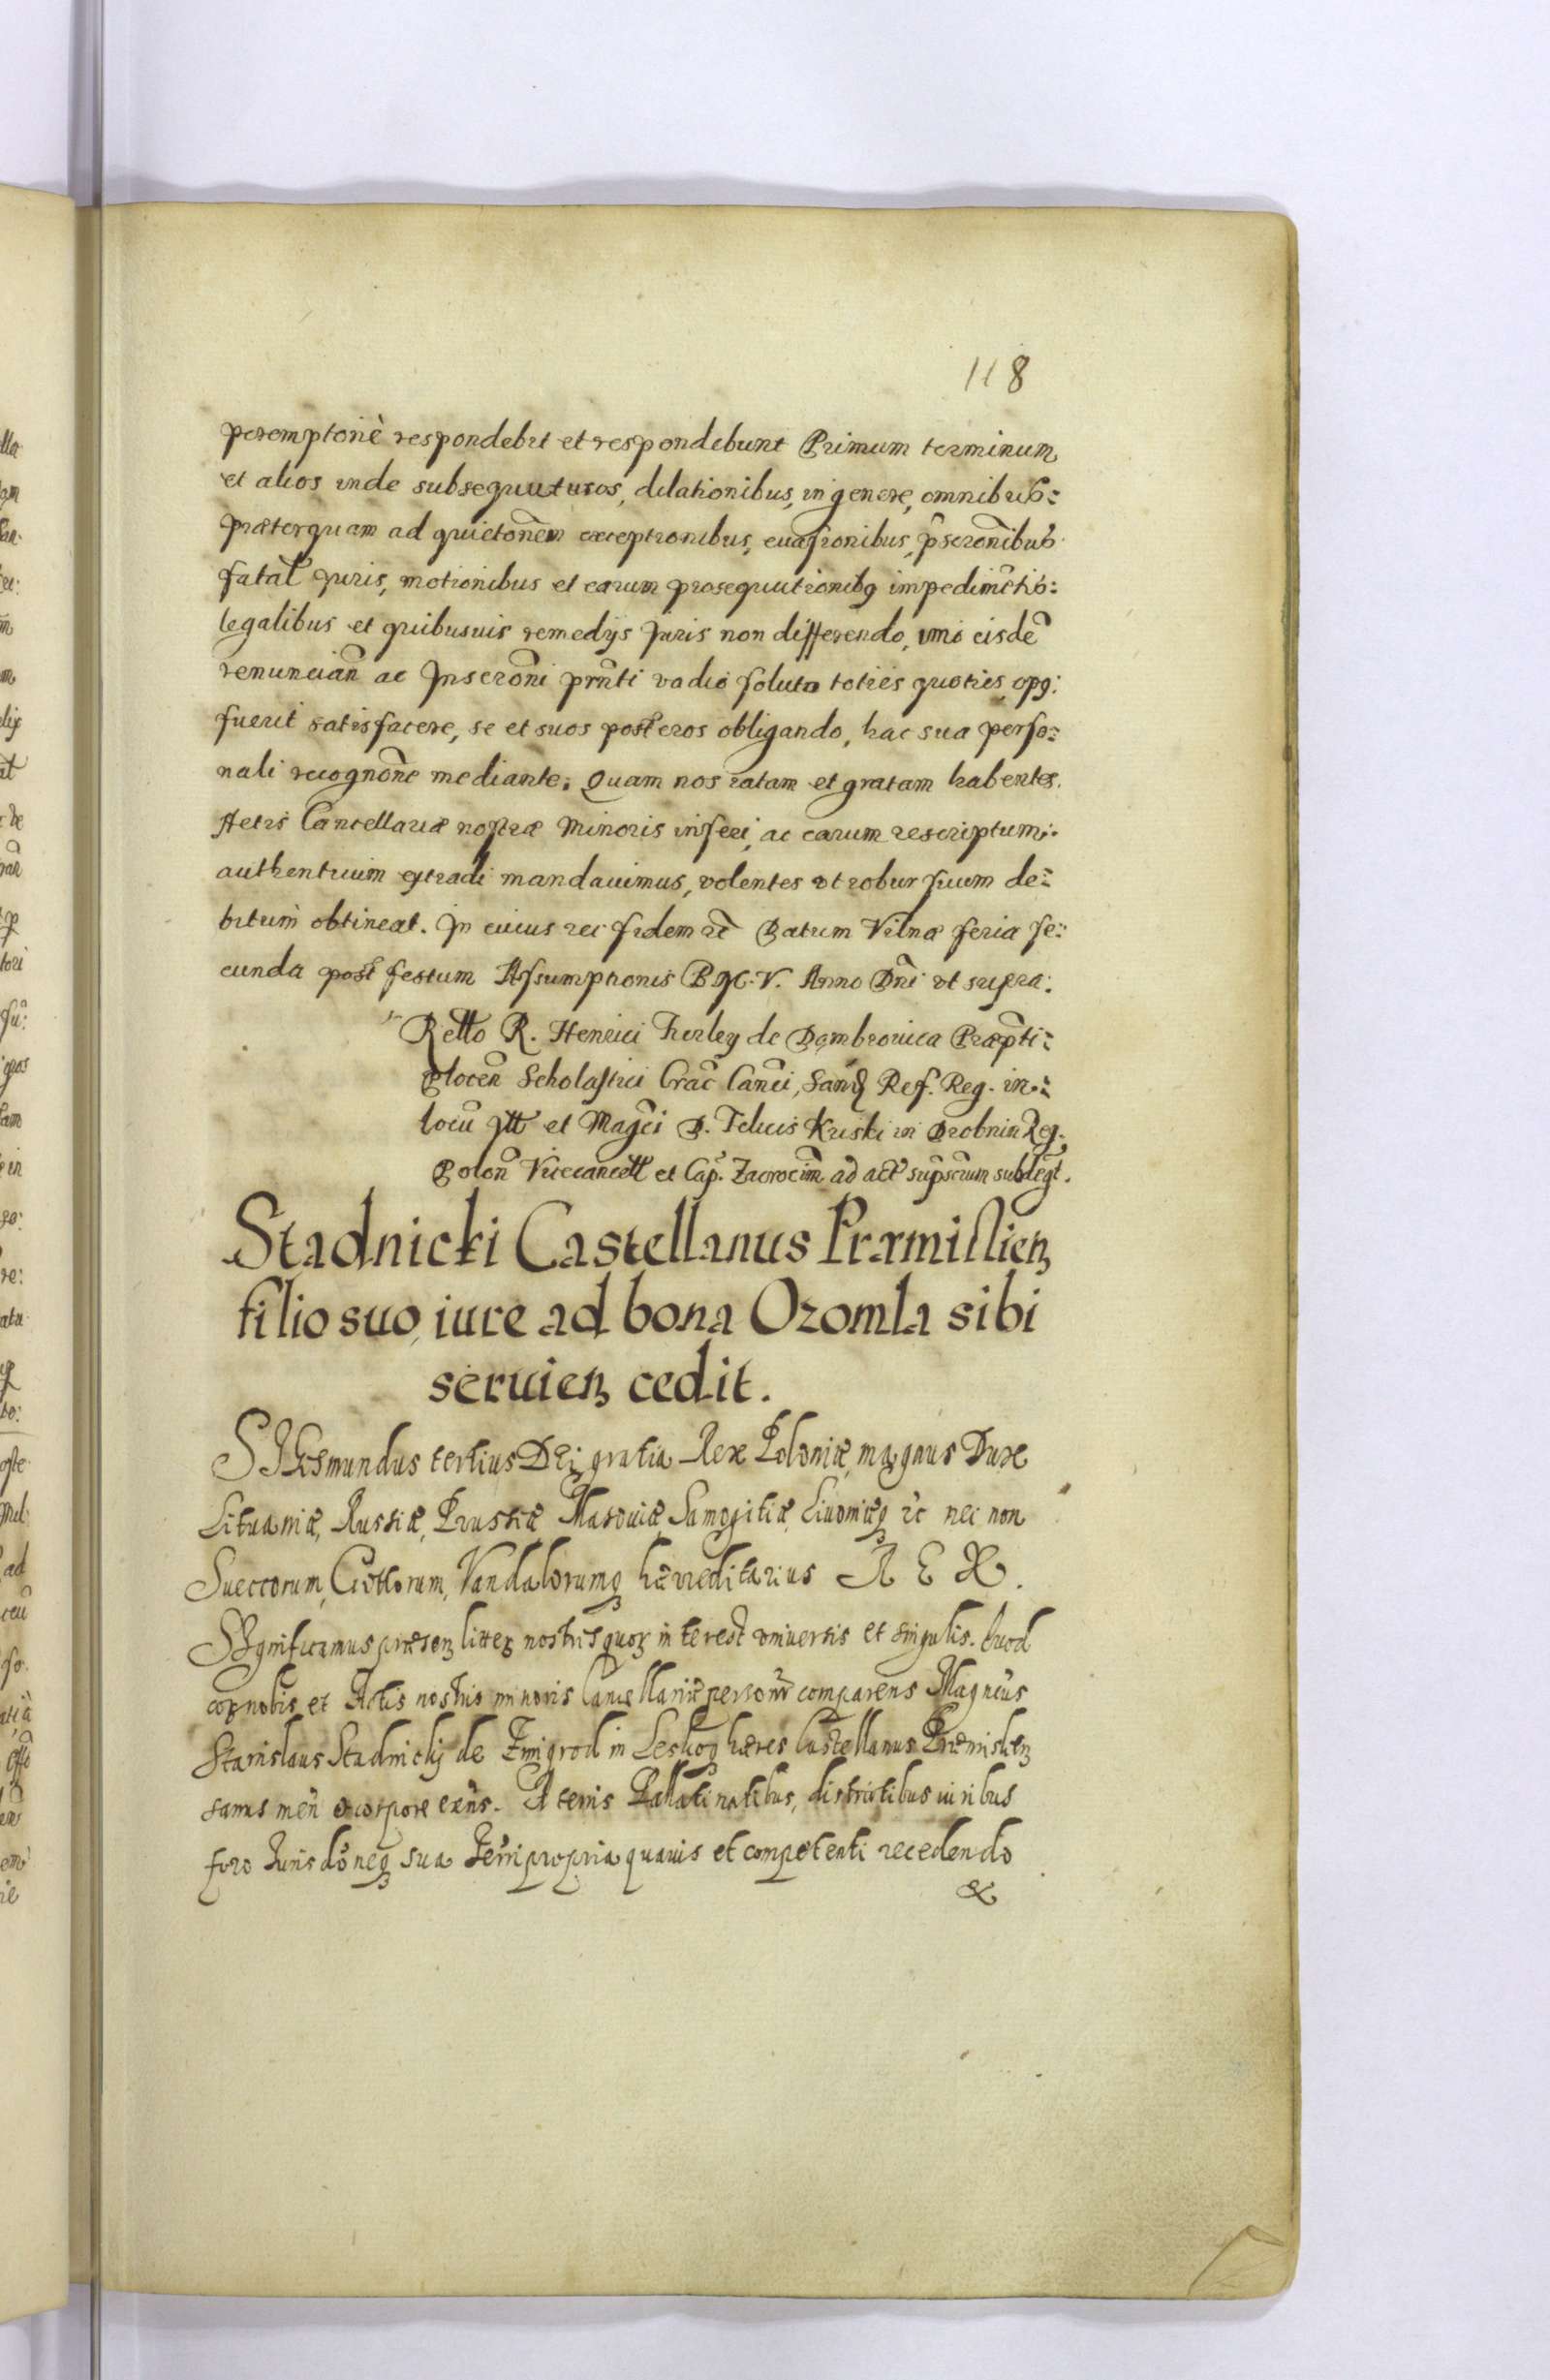 118
peremptoriè respondebit et respondebunt Primum terminum
et alios inde subsequuturos, dilationibus, in genere, omnibus:
præterquam ad quictonēm exceptionibus, euasionibus, p̄scronībus
fatal Juris, motionibus et earum prosequutionibq impedimētis:
legalibus et quibusuis remedijs Juris non differendo, imo eisdē
renunciān ac Jnscronī prn̄ti vadio soluto toties quoties, opq:
fuerit satisfacere, se et suos posteros obligando, hac sua perso:
nali recognōne mediante; Quam nos ratam et gratam habentes.
Actis Cancellariæ nostræ Minoris inseri, ac earum rescriptum:
authenticum extradi mandauimus, volentes vt robur suum de:
bitum obtineat. Jn cuius rei fidem etc̄ Datum Vilnæ feria se:
cunda post festum Assumptionis B.M.V. Anno Dn̄i vt supra:
Rello R. Henrici Firley de Dąmbrowica Præpti:
Plocen̄ Scholastici Crac̄ Canci, San̄ Ref. Reg. in:
locū Jll et Magc̄i D. Felicis Kriski in Drobnin Reg.
Polon̄ Vicecancell et Cap. Zacrocim̄ ad act sup̄scrum subdegt.
Stadnicki Castellanus Præmislien
filio suo iure ad bona Ozomla sibi
seruien cedit.
SIGismundus tertius DEi gratia Rex Poloniæ, magnus Dux
Lituaniæ, Russiæ, Prussiæ Masouiæ, Samogitiæ, Liuoniæq etc nec non
Sueccorum, Gottorum, Vandalorumq hærreditarius REX.
SIgnificamus præsen litter nostris quor interest vniuersis et singulis. Quod
cor nobis et Actis nostris minoris Cancellariæ personr comparens Magncus
Stanislaus Stadnickij de Zmigrod in Leskog hæres Castellanus Præmislien
sanus men̄ et corpore exn̄s. A terris Pallatinatibus, districtibus iuribus
foro Juris dōneq sua terri propria quauis et competenti recedendo
&